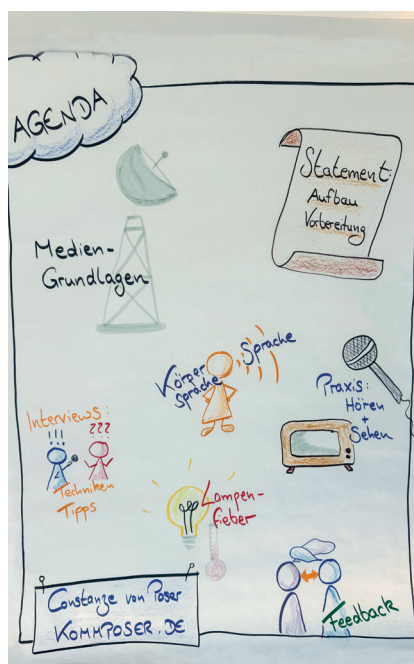 AGENDA
Statement:
Aufbau
Vorbereitung
Medien-
Grundlagen
Körper
sprache
Sprache
Praxis:
Hören
+
Sehen
Interviews:
!!! ???
Techniken
Tipps
Lampen-
fieber
Feedback
Constanze von Poser
KOMMPOSER.DE